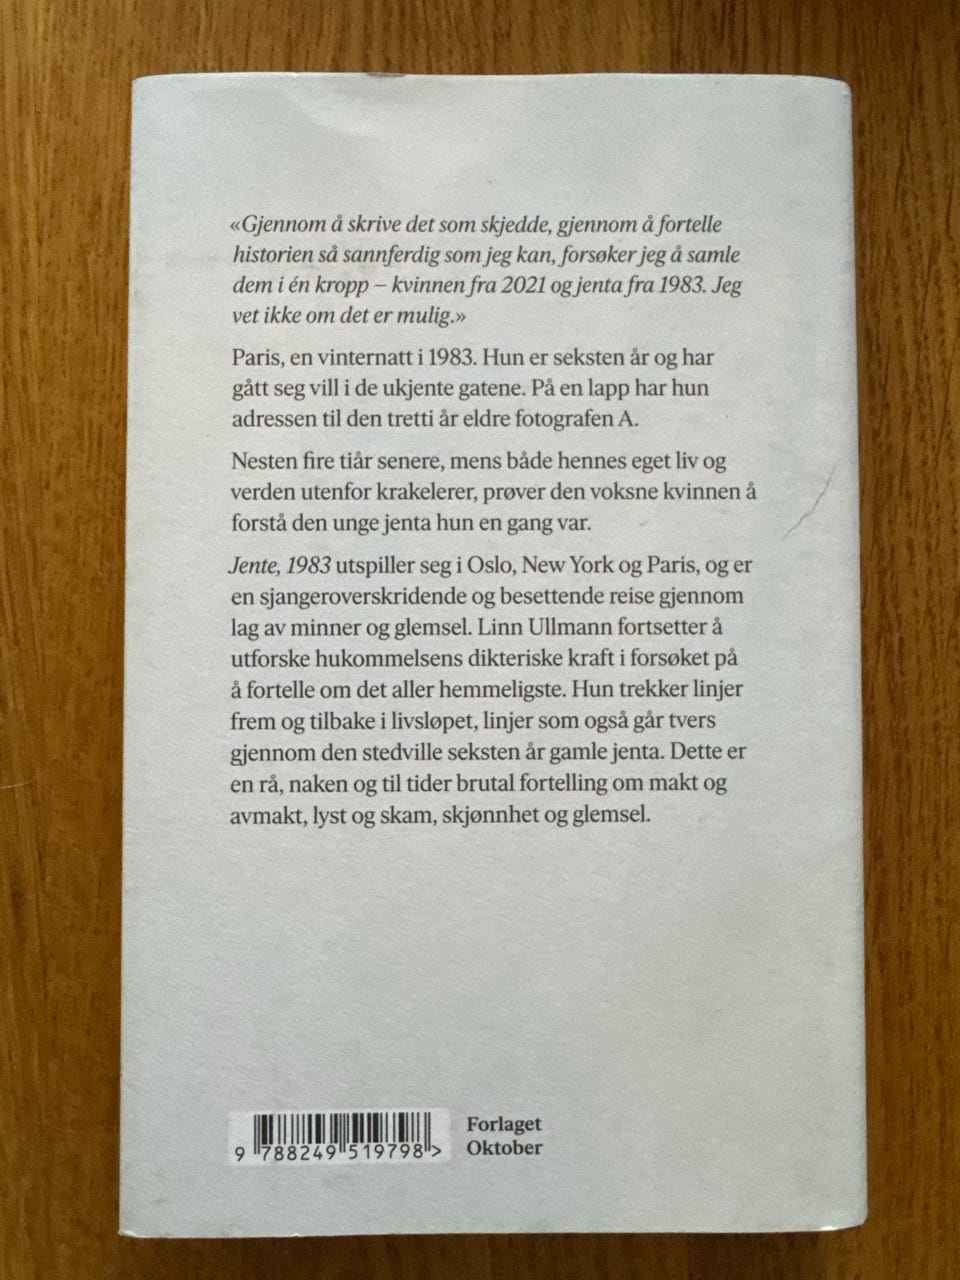 «Gjennom å skrive det som skjedde, gjennom å fortelle
historien så sannferdig som jeg kan, forsøker jeg å samle
dem i én kropp – kvinnen fra 2021 og jenta fra 1983. Jeg
vet ikke om det er mulig.»
Paris, en vinternatt i 1983. Hun er seksten år og har
gått seg vill i de ukjente gatene. På en lapp har hun
adressen til den tretti år eldre fotografen A.
Nesten fire tiår senere, mens både hennes eget liv og
verden utenfor krakelerer, prøver den voksne kvinnen å
forstå den unge jenta hun en gang var.
Jente, 1983 utspiller seg i Oslo, New York og Paris, og er
en sjangeroverskridende og besettende reise gjennom
lag av minner og glemsel. Linn Ullmann fortsetter å
utforske hukommelsens dikteriske kraft i forsøket på
å fortelle om det aller hemmeligste. Hun trekker linjer
frem og tilbake i livsløpet, linjer som også går tvers
gjennom den stedville seksten år gamle jenta. Dette er
en rå, naken og til tider brutal fortelling om makt og
avmakt, lyst og skam, skjønnhet og glemsel.
9 788249 519798 >
Forlaget
Oktober